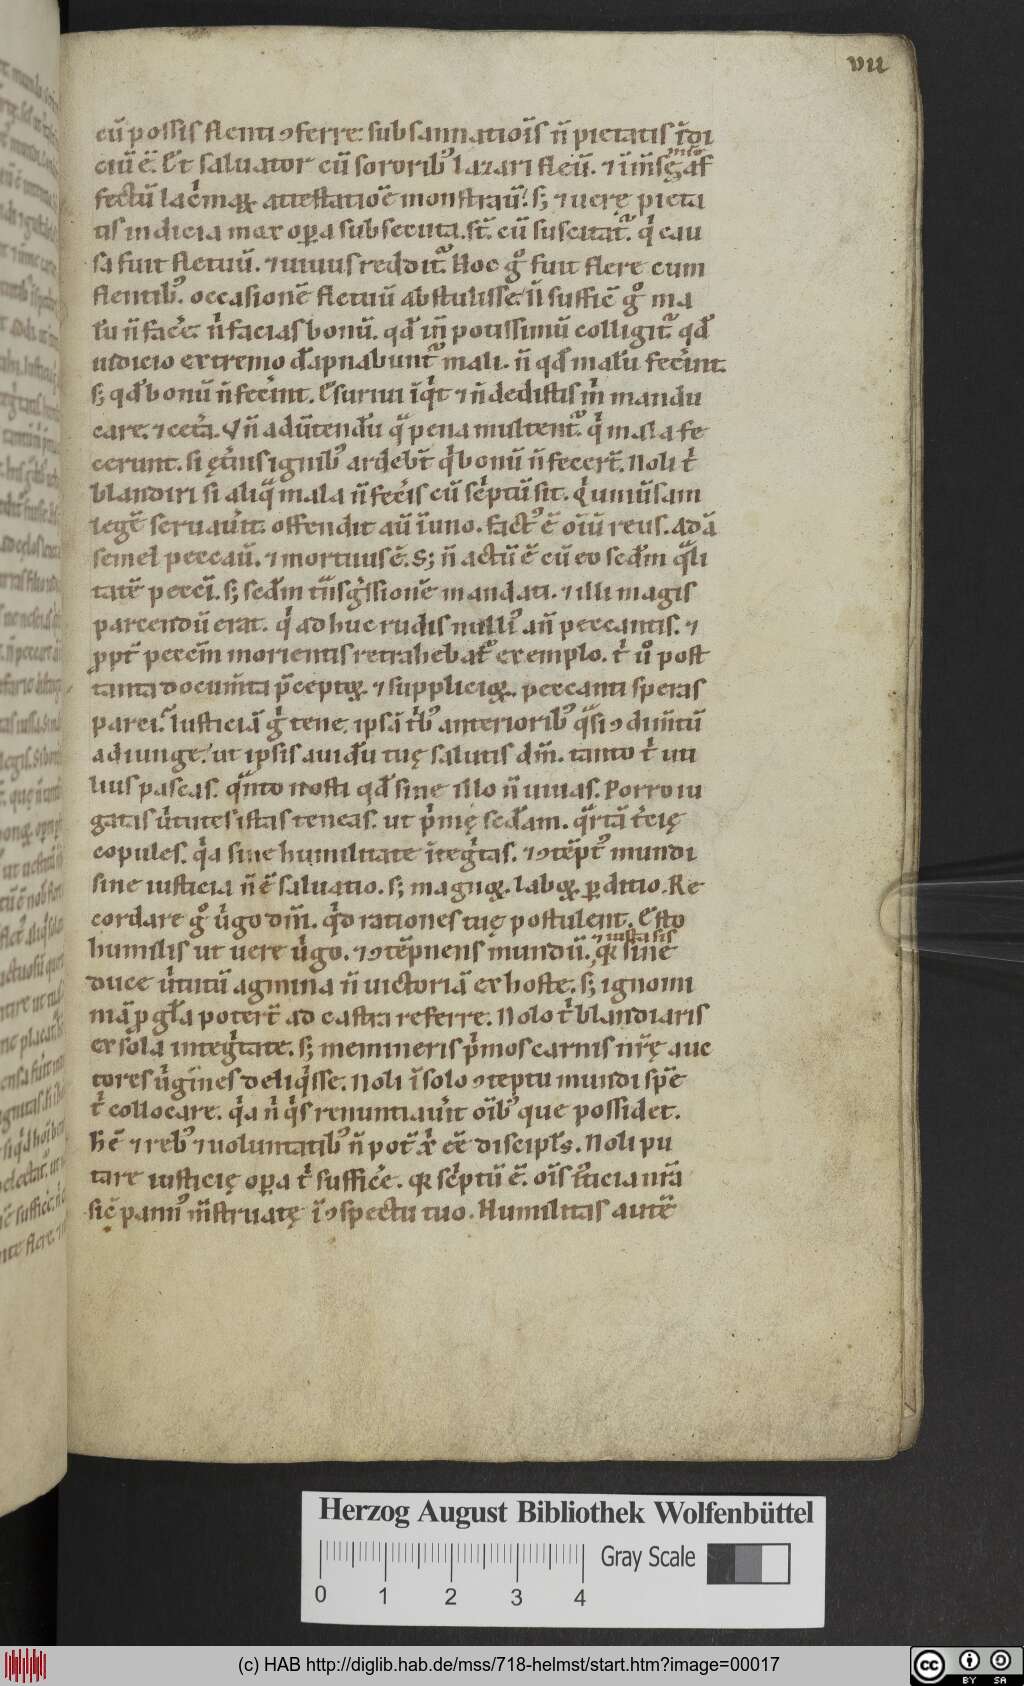 vii
cū possis flenti ꝯferre: subsannatiōis n̄ pietatis īdi
ciū ē. Et saluator cū sororibꝰ lazari fleū.
fectū lac̄maꝝ attestatiōe monstrauꝰ. sꝫ ⁊ uerę pieta
tis indicia mox oꝑa subsecuta st̄. cū suscitat̄. qͥ cau
sa fuit fletuū. ⁊ uiuus reddit᷑. Hoc gͦ fuit flere cum
flentibꝰ. occasionē fletuū abstulisse. N̄ suffic̄ gͦ ma
lū n̄ facē. nͥ facias bonū. qđ in̄ potissimū colligit᷑ qđ
iudicio extremo dāpnabunt᷑ mali. n̄ qđ malū fecͥint.
sꝫ qđ bonū n̄ fecͥint. Esuriui īqͥt ⁊ n̄ dedistis mͥ mandu
care. ⁊ cetͥa. V n̄ aduͥtendū qͣ pena multent᷑. qͥ mala fe
cerunt. si ęt̄nis ignibꝰ ardebt̄ qͥ bonū n̄ fecert̄. Noli tͥ
blandiri si aliqͣ mala n̄ fecͥis cū scͥptū sit. Qͥ uniūsam
legē seruauͥit. offendit aū ī uno. factꝰ ē oīū reus. Adā
semel peccauͥ. ⁊ mortuus ē. Sꝫ n̄ actū ē cū eo sedm qͣli
tatē peccͥi. sꝫ sedm tͣnsgͥssionē mandati. ⁊ illi magis
parcendū erat. qͥ adhuc rudis nulliꝰ an̄ peccantis. ⁊
ꝓpt̄ peccm̄ morientis retrahebat᷑ exemplo. tͥ uͦ post
tanta docum̄ta p̄ceptoꝝ. ⁊ supplicioꝝ. peccanti speras
parci. Iusticiā gͥ tene. ipsā tͥbꝰ anterioribꝰ qͣsi ꝯdim̄tū
adiunge. ut ipsis auidū tuę salutis dm̄. tanto tͥ uti
lius pascas. qͣnto nosti qđ sine illo n̄ uiuas. Porro iu
gatis uͥtutes istas teneas. ut pͥmę sedam. qͣrtā tͥcię
copules. qͥa sine humilitate ītegͥtas. ⁊ ꝯtēptꝰ mundi
sine iusticia n̄ ē saluatio. sꝫ magnoꝝ. laboꝝ. ꝑditio. Re
cordare gͦ uͥgo dm̄. qͥd rationes tuę postulent. Esto
humilis ut uere uͥgo. ⁊ ꝯtēpnens mundū. ⁊ iusta sis qͥ sine
duce uͥtutū agmina n̄ uictoriā ex hoste. sꝫ ignomi
niā ꝓ gl̄a potert̄ ad castra referre. Nolo tͥ blandiaris
ex sola integͥtate. sꝫ memineris pͥmos carnis nr̄ę auc
tores uͥgines deliqͥsse. Noli ī solo ꝯteptu mundi spē
tͥ collocare. qͥa nͥ qͥs renuntiauͥit oībꝰ que possidet.
hͥ ē ⁊ rebꝰ ⁊ uoluntatibꝰ n̄ pot̄ xͥ eē discipl̄s. Noli pu
tare iusticię oꝑa tͥ sufficͥe. qͥ scͥptū ē. oīs iꝰticia nr̄a
sic̄ pannꝰ m̄struatę ī ꝯspectu tuo. Humilitas autē
Herzog August Bibliothek Wolfenbüttel
Gray Scale
0 1 2 3 4
(c) HAB http://diglib.hab.de/mss/718-helmst/start.htm?image=00017
cc BY SA